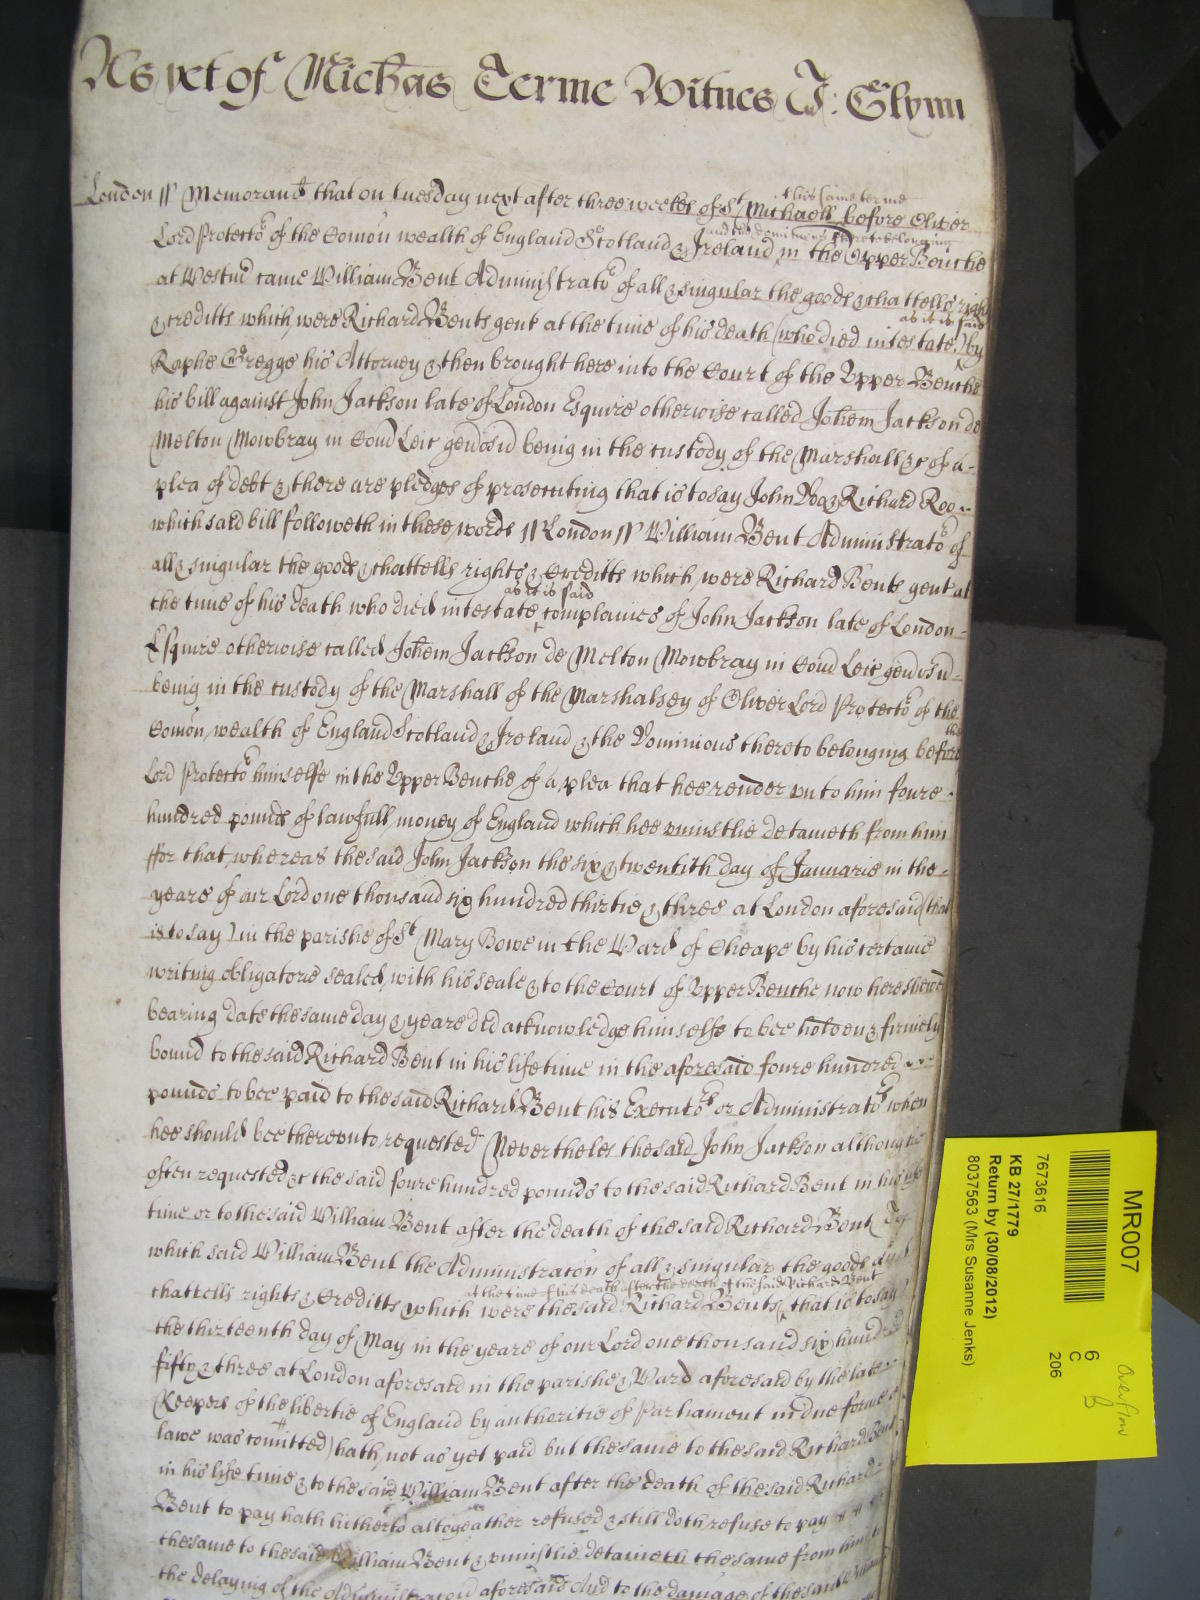 As yet of Michas Terme Witnes J: Glynn
this same terme
London // Memorand that on tuesday next after three weekes of St Michaell before Oliver
and the dominions thereto belonging
Lord Protector of the Comon wealth of England Scotland & Ireland in the Upper Benche
at Westm came William Bent Administrator of all & singular the goods & chattells rights
as it is said
& creditts which were Richard Bents gent at the time of his death (who died intestate) by
Raphe Gregge his Attorney & then brought here into the Court of the Upper Benche
his bill against John Jackson late of London Esquire otherwise called Johem Jackson de
Melton Mowbray in Com Leic being in the custody of the Marshall &c of a
plea of debt & there are pledges of prosecuting that is to say John Doo & Richard Roo
which said bill followeth in these words // London // William Bent Administrator of
all & singular the goods & chattells rights & creditts which were Richard Bents gent at
as it is said
the time of his death who died intestate complaines of John Jackson late of London
Esquire otherwise called Johem Jackson de Melton Mowbray in Com Leic
being in the custody of the Marshall of the Marshalsey of Oliver Lord Protector of the
the
Comon wealth of England Scotland & Ireland & the Dominions thereto belonging before
Lord Protector himselfe in the Upper Benche of a plea that hee render unto him foure
hundred pounds of lawfull money of England which hee uniustlie detaineth from him
ffor that whereas the said John Jackson the six & twentith day of Januarie in the
yeare of our Lord one thousand six hundred thirtie & three at London aforesaid (that
is to say) in the parishe of St Mary Bowe in the Ward of Cheape by his certaine
writing obligatorie sealed with his seale & to the Court of Upper Benche now here shewed
bearing date the same day & yeare did acknowledge himselfe to bee holden & firmely
bound to the said Richard Bent in his life time in the aforesaid foure hundred
pounds to bee paid to the said Richard Bent his Executors or Administrators when
hee should bee thereunto requested Nevertheles the said John Jackson although
often requested &c the said foure hundred pounds to the said Richard Bent in his life
time or to the said William Bent after the death of the said Richard Bent To
which said William Bent the Administracon of all & singular the goods and
at the time of his death after the death of the said Richard Bent
chattells rights & Creditts which were the said Richard Bents that is to say
the thirteenth day of May in the yeare of our Lord one thousand six hundred
fifty & three at London aforesaid in the parishe & Ward aforesaid by the late
Keepers of the libertie of England by authoritie of Parliament in due forme of
lawe was comitted) hath not as yet paid but the same to the said Richard Bent
in his life time & to the said William Bent after the death of the said Richard
Bent to pay hath hitherto altogeather refused & still doth refuse to pay
the same to the said William Bent & uniustlie detaineth the same from him to
the delaying of the Administracon aforesaid And to the damage of the said William
MR007
7673616
KB 27/1779
Return by (30/08/2012)
8037563 (Mrs Susanne Jenks)
6
C
206
Overflow